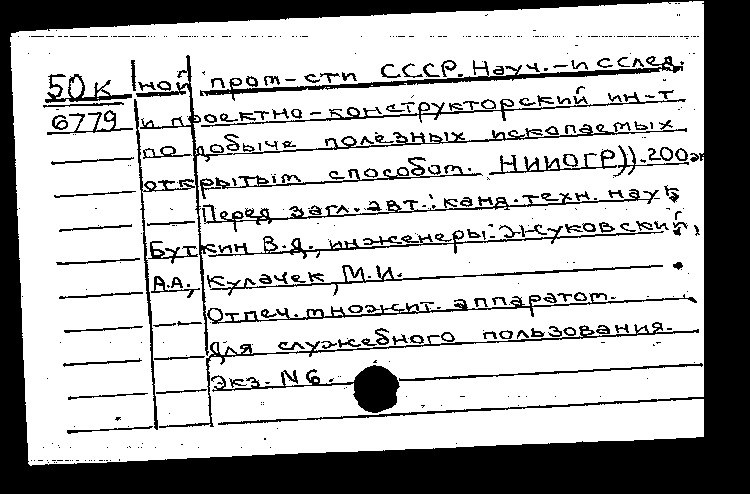 50к ной пром-сти СССР. Науч.-исслед.
6779 и проектно-конструкторский ин-т
по добыче полезных ископаемых
открытым способом. НИИОГР)). 200э
Перед загл. авт.: канд. техн. наук
Буткин В.Д., инженеры: Жуковский,
А.А., Кулачек, М.И.
Отпеч. множит. аппаратом.
Для служебного пользования.
Экз. N6.